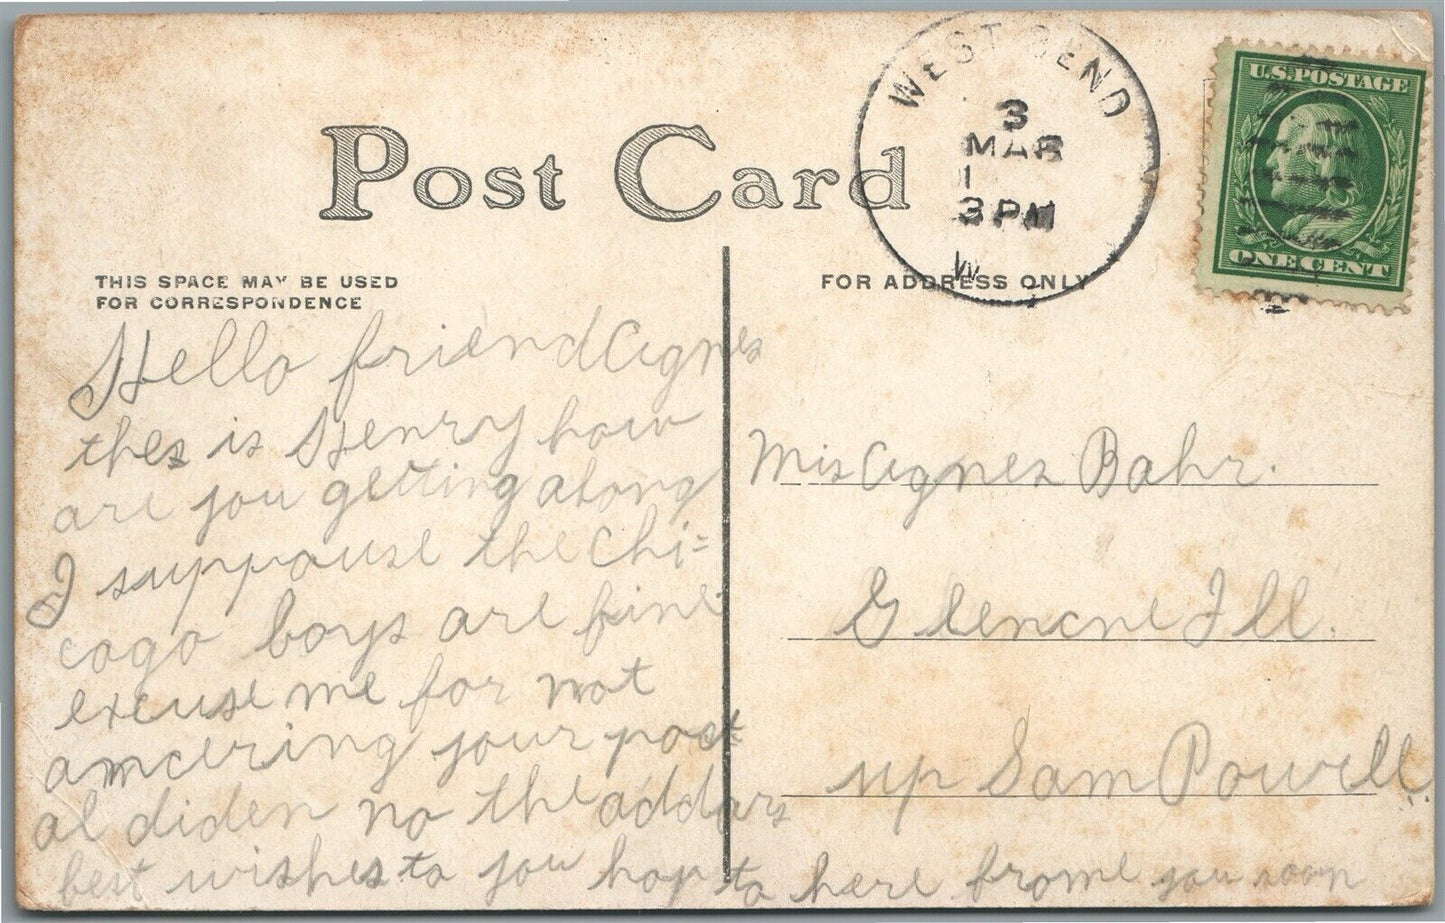 Post Card
THIS SPACE MAY BE USED
FOR CORRESPONDENCE
Hello friend Agnes
thes is Henry how
are you getting along
I suppouse the Chi=
cogo boys are fine
excuse me for not
amcering your post
al diden no the addars
best wishes to you hop to here frome you soon
WEST BEND
3
MAR
1
3 PM
W
U.S. POSTAGE
ONE CENT
FOR ADDRESS ONLY
Mis Agnes Bahr.
Glencne Ill.
up Sam Powell.